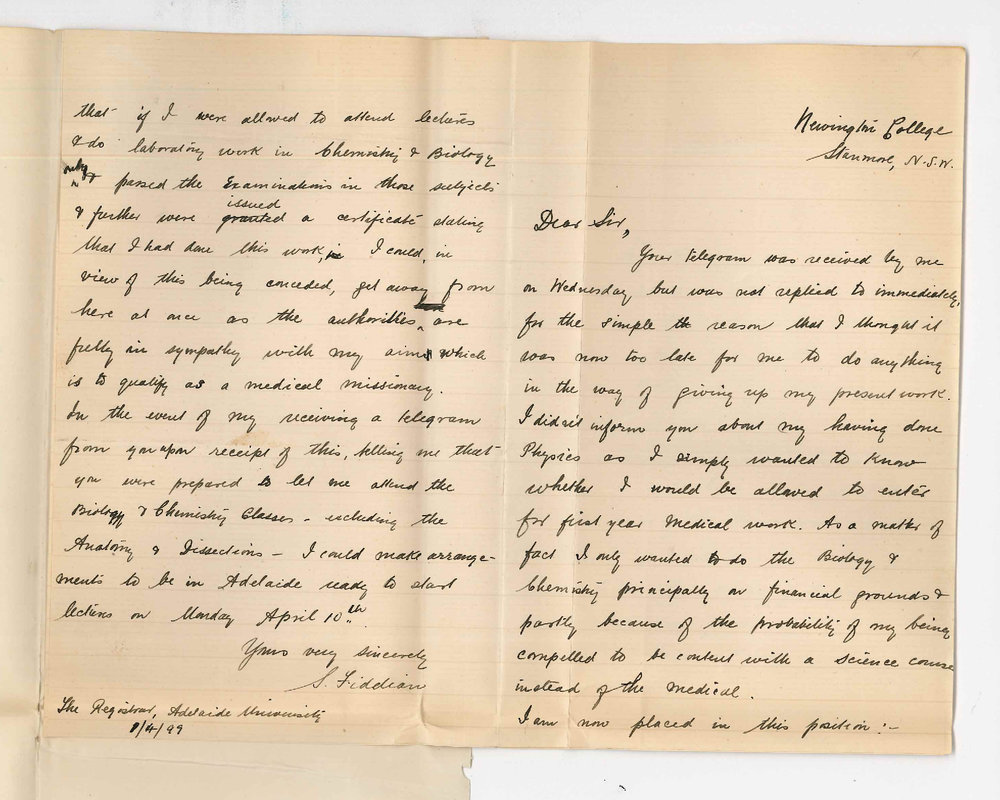 Newington College
Stanmore, N.S.W.
Dear Sir,
Your telegram was received by me
on Wednesday but was not replied to immediately,
for the simple th reason that I thought it
was now too late for me to do anything
in the way of giving up my present work.
I didn't inform you about my having done
Physics as I simply wanted to know
whether I would be allowed to enter
for first year Medical work. As a matter of
fact I only wanted to do the Biology &
Chemistry principally on financial grounds &
partly because of the probability of my being
compelled to be content with a science course
instead of the medical.
I am now placed in this position :-
that if I were allowed to attend lectures
& do laboratory work in Chemistry & Biology
only & passed the Examinations in those subjects
issued
& further were granted a certificate stating
that I had done this work, in I could, in
view of this being conceded, get away from
here at once as the authorities are
fully in sympathy with my aims which
is to qualify as a medical missionary.
In the event of my receiving a telegram
from you upon receipt of this, telling me that
you were prepared to let me attend the
Biology & Chemistry Classes - including the
Anatomy & Dissections - I could make arrange-
ments to be in Adelaide ready to start
lectures on Monday April 10th.
Yours very sincerely
S. Fiddian
The Registrar, Adelaide University
8/4/99